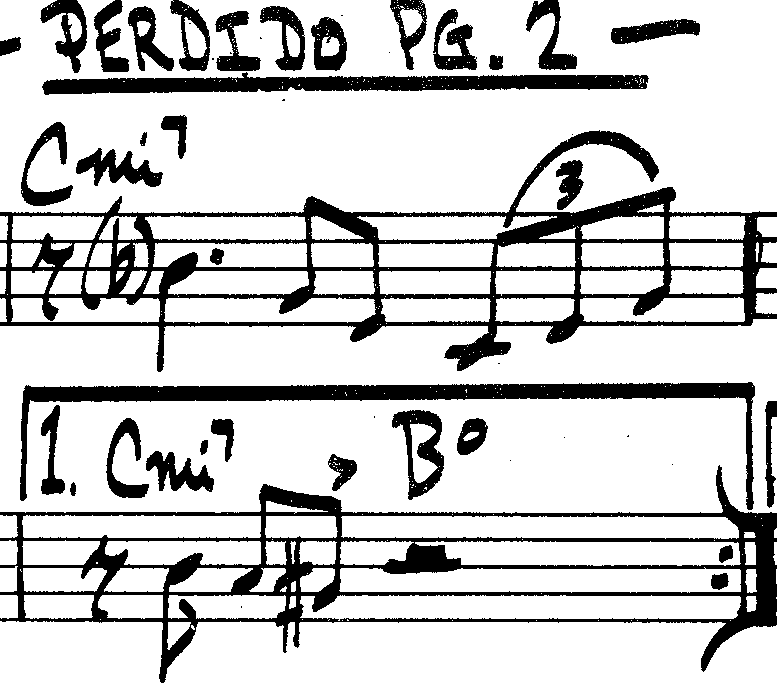 — PERDIDO PG. 2 —
Cmi7
(♭)
3
1. Cmi7 B°